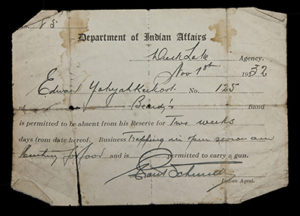 No. 85
Department of Indian Affairs
Duck Lake Agency.
Nov 1st 1932
Edward Yahyahkeekoot No. 125
Beardy's Band
is permitted to be absent from his Reserve for Two weeks
days from date hereof. Business Trapping in open season and
hunting for food and is permitted to carry a gun.
Schmidt
Indian Agent.